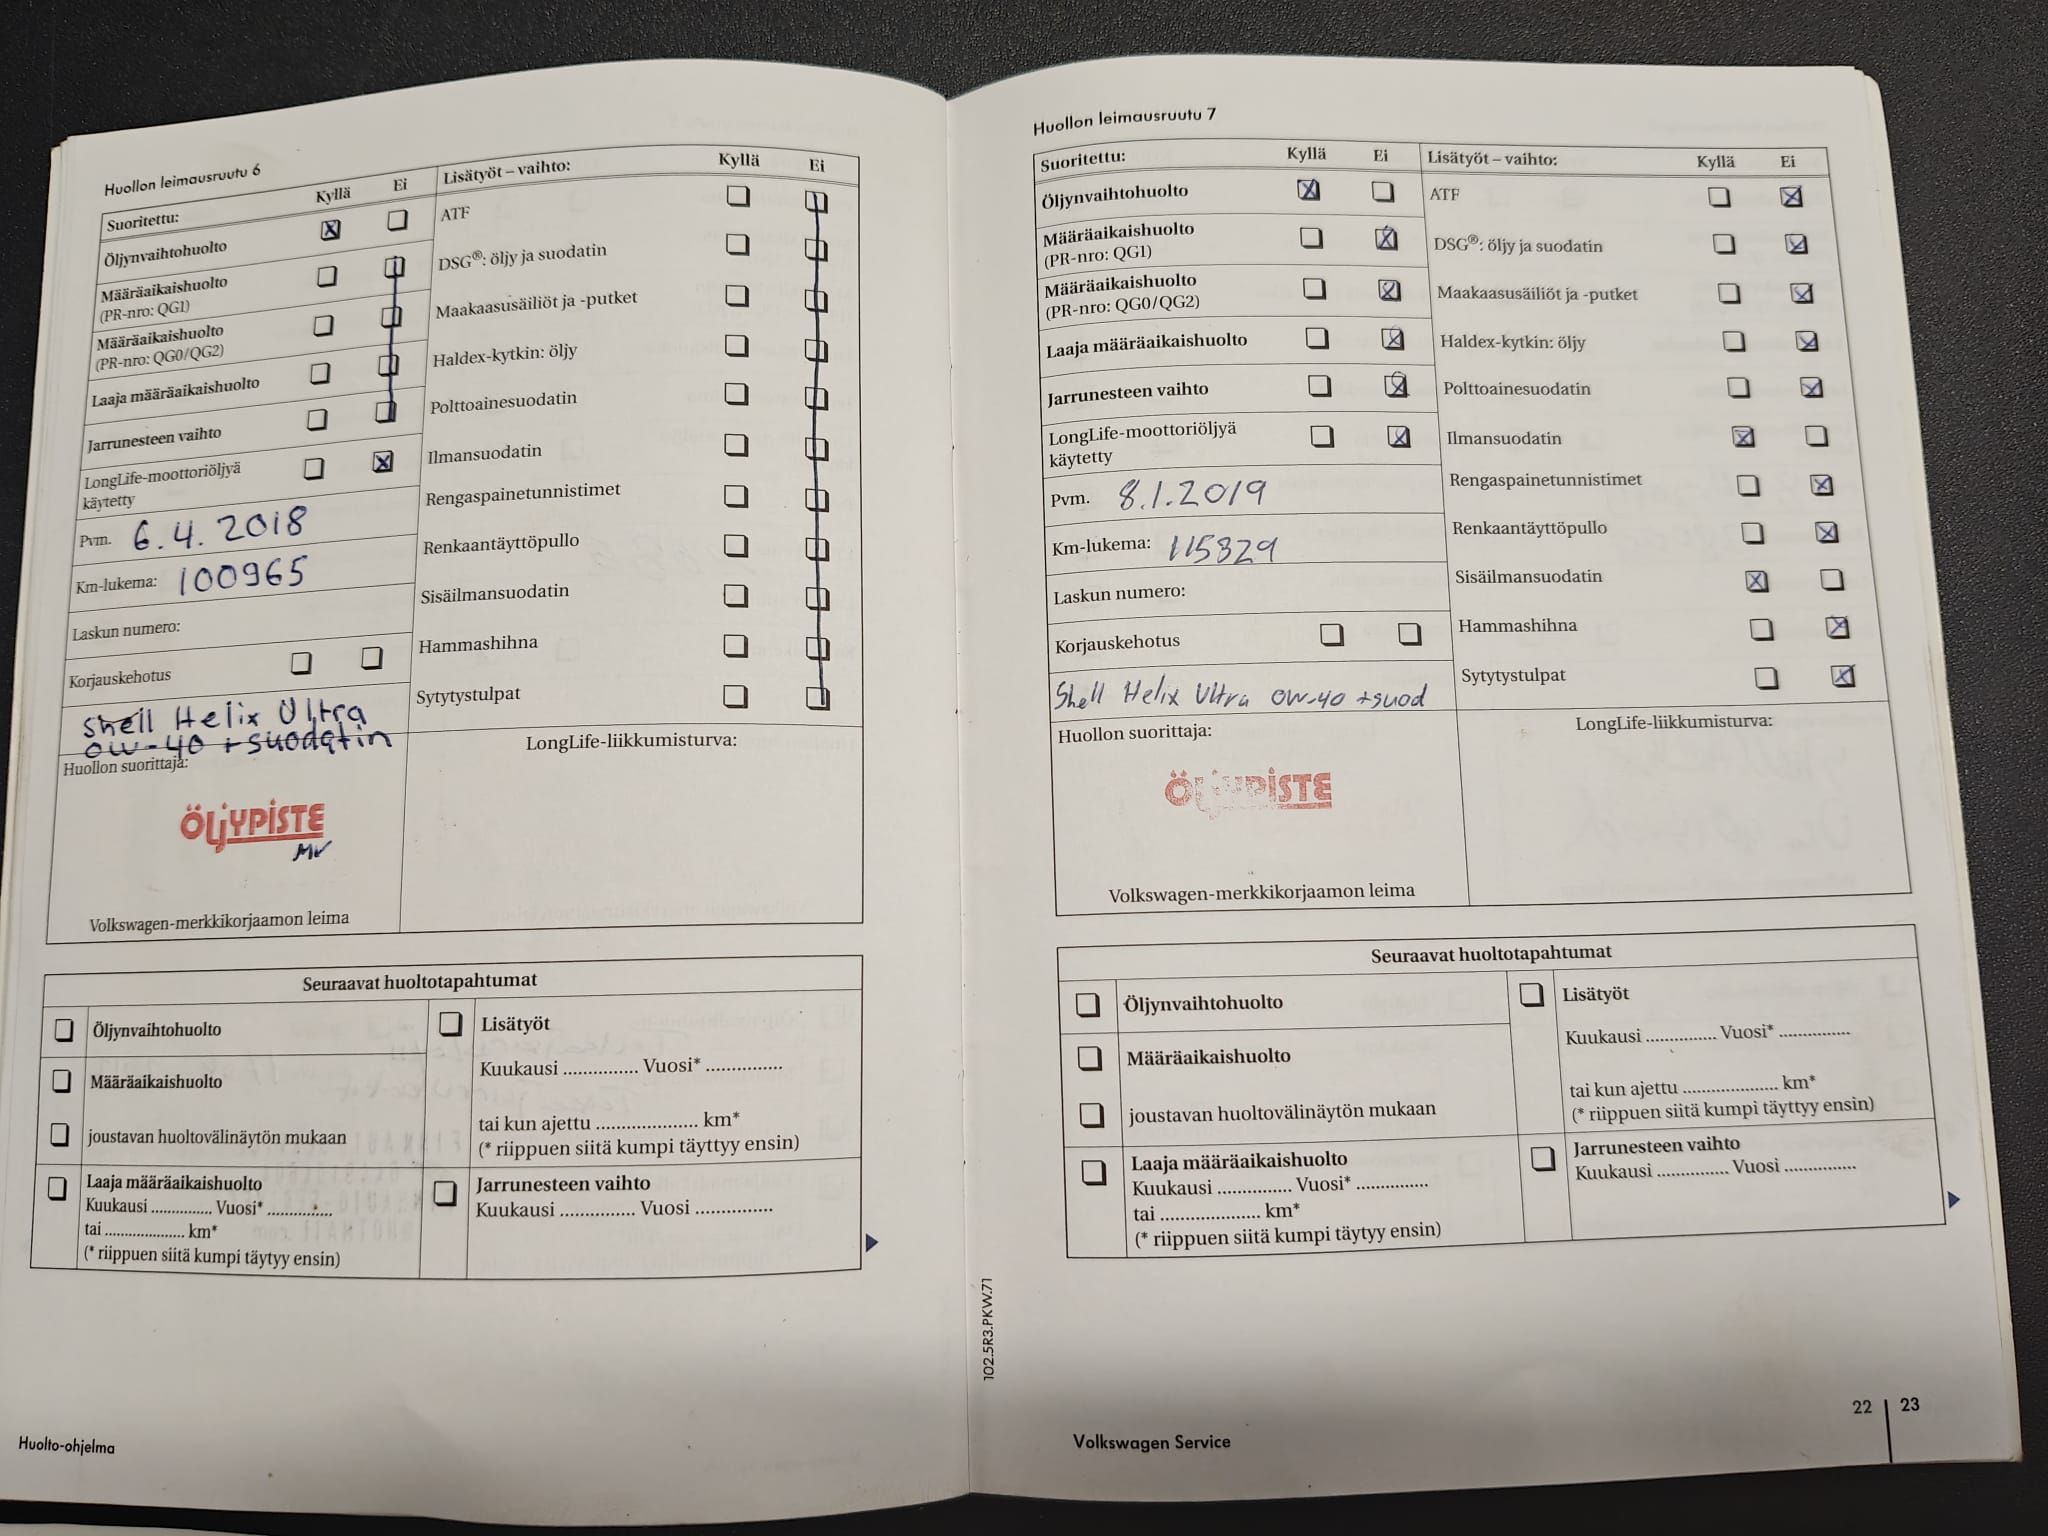 Huollon leimausruutu 6
Suoritettu: Kyllä Ei
Öljynvaihtohuolto
Määräaikaishuolto
(PR-nro: QG1)
Määräaikaishuolto
(PR-nro: QG0/QG2)
Laaja määräaikaishuolto
Jarrunesteen vaihto
LongLife-moottoriöljyä
käytetty
Pvm. 6.4.2018
Km-lukema: 100965
Laskun numero:
Korjauskehotus
Shell Helix Ultra
0W-40 + suodatin
Huollon suorittaja:
ÖLJYPISTE
MV
Volkswagen-merkkikorjaamon leima
Lisätyöt – vaihto: Kyllä Ei
ATF
DSG®: öljy ja suodatin
Maakaasusäiliöt ja -putket
Haldex-kytkin: öljy
Polttoainesuodatin
Ilmansuodatin
Rengaspainetunnistimet
Renkaantäyttöpullo
Sisäilmansuodatin
Hammashihna
Sytytystulpat
LongLife-liikkumisturva:
Seuraavat huoltotapahtumat
Öljynvaihtohuolto
Määräaikaishuolto
joustavan huoltovälinäytön mukaan
Laaja määräaikaishuolto
Kuukausi ............... Vuosi* ................
tai .................... km*
(* riippuen siitä kumpi täytyy ensin)
Lisätyöt
Kuukausi ............... Vuosi* ...............
tai kun ajettu .................... km*
(* riippuen siitä kumpi täyttyy ensin)
Jarrunesteen vaihto
Kuukausi ............... Vuosi ...............
Huolto-ohjelma
Huollon leimausruutu 7
Suoritettu: Kyllä Ei
Öljynvaihtohuolto
Määräaikaishuolto
(PR-nro: QG1)
Määräaikaishuolto
(PR-nro: QG0/QG2)
Laaja määräaikaishuolto
Jarrunesteen vaihto
LongLife-moottoriöljyä
käytetty
Pvm. 8.1.2019
Km-lukema: 115329
Laskun numero:
Korjauskehotus
Shell Helix Ultra 0W-40 +suod
Huollon suorittaja:
ÖLJYPISTE
Volkswagen-merkkikorjaamon leima
Lisätyöt – vaihto: Kyllä Ei
ATF
DSG®: öljy ja suodatin
Maakaasusäiliöt ja -putket
Haldex-kytkin: öljy
Polttoainesuodatin
Ilmansuodatin
Rengaspainetunnistimet
Renkaantäyttöpullo
Sisäilmansuodatin
Hammashihna
Sytytystulpat
LongLife-liikkumisturva:
Seuraavat huoltotapahtumat
Öljynvaihtohuolto
Määräaikaishuolto
joustavan huoltovälinäytön mukaan
Laaja määräaikaishuolto
Kuukausi ............... Vuosi* ...............
tai .................... km*
(* riippuen siitä kumpi täytyy ensin)
Lisätyöt
Kuukausi ............... Vuosi* ...............
tai kun ajettu .................... km*
(* riippuen siitä kumpi täyttyy ensin)
Jarrunesteen vaihto
Kuukausi ............... Vuosi ...............
102.5R3.PKW.71
Volkswagen Service
22 23